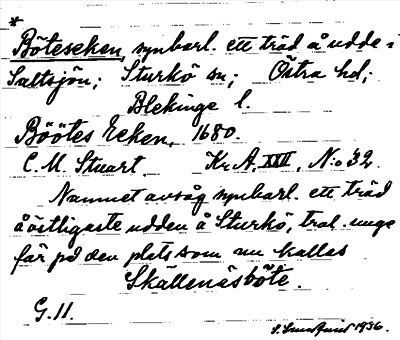 *
Böteseken, synbarl. ett träd å udde i
Saltsjön; Sturkö sn; Östra hd;
Blekinge l.
Böötes Eeken, 1680.
C. M. Stuart. Kr. A. XXV, N:o 32.
Namnet avsåg synbarl. ett träd
å östligaste udden å Sturkö, tral. unge-
fär på den plats som nu kallas
Skällenäsböte.
G. 11.
1936.